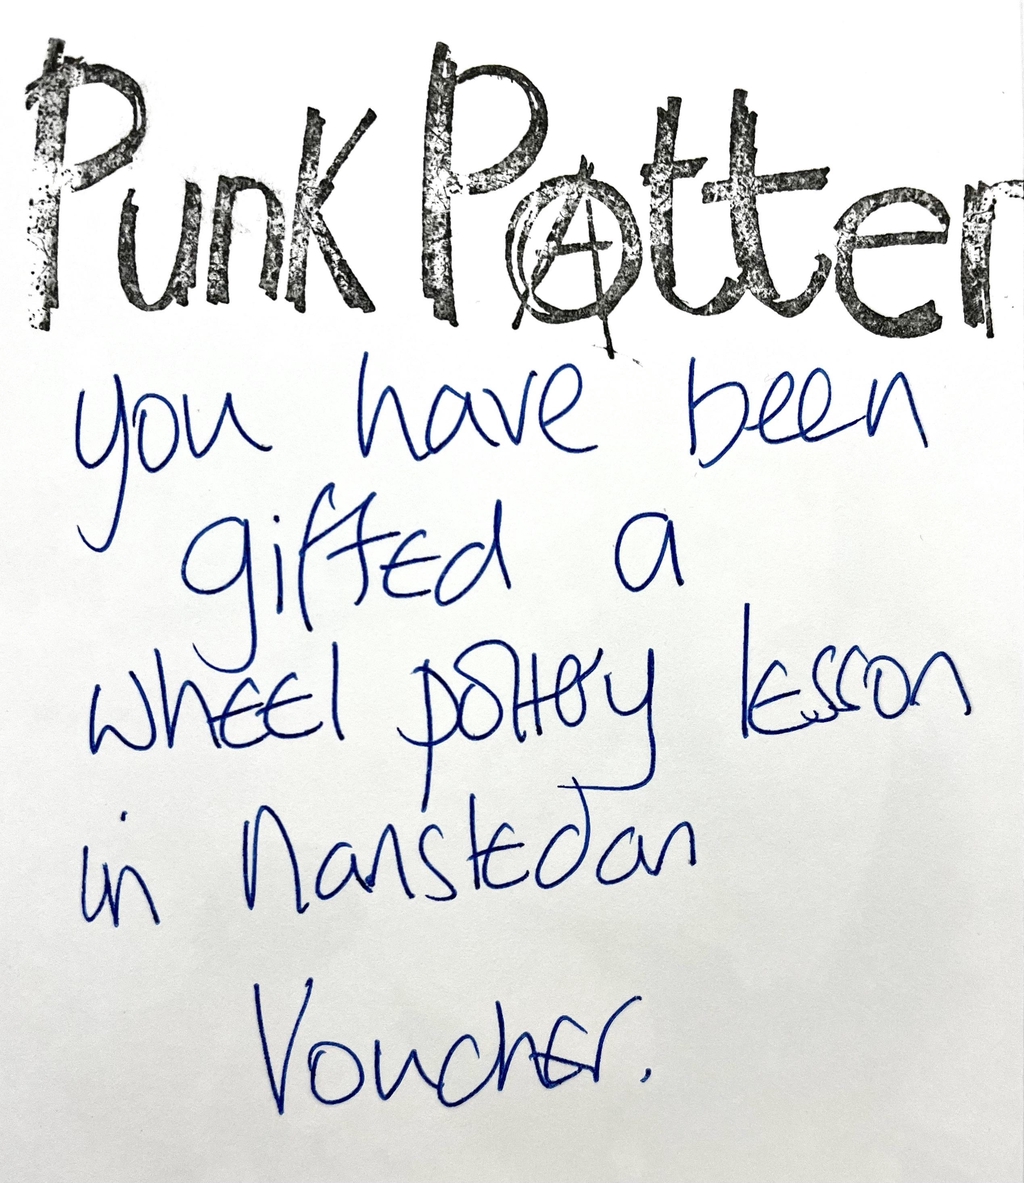 Punk Potter
you have been
gifted a
wheel pottery lesson
in Nansledan
Voucher.